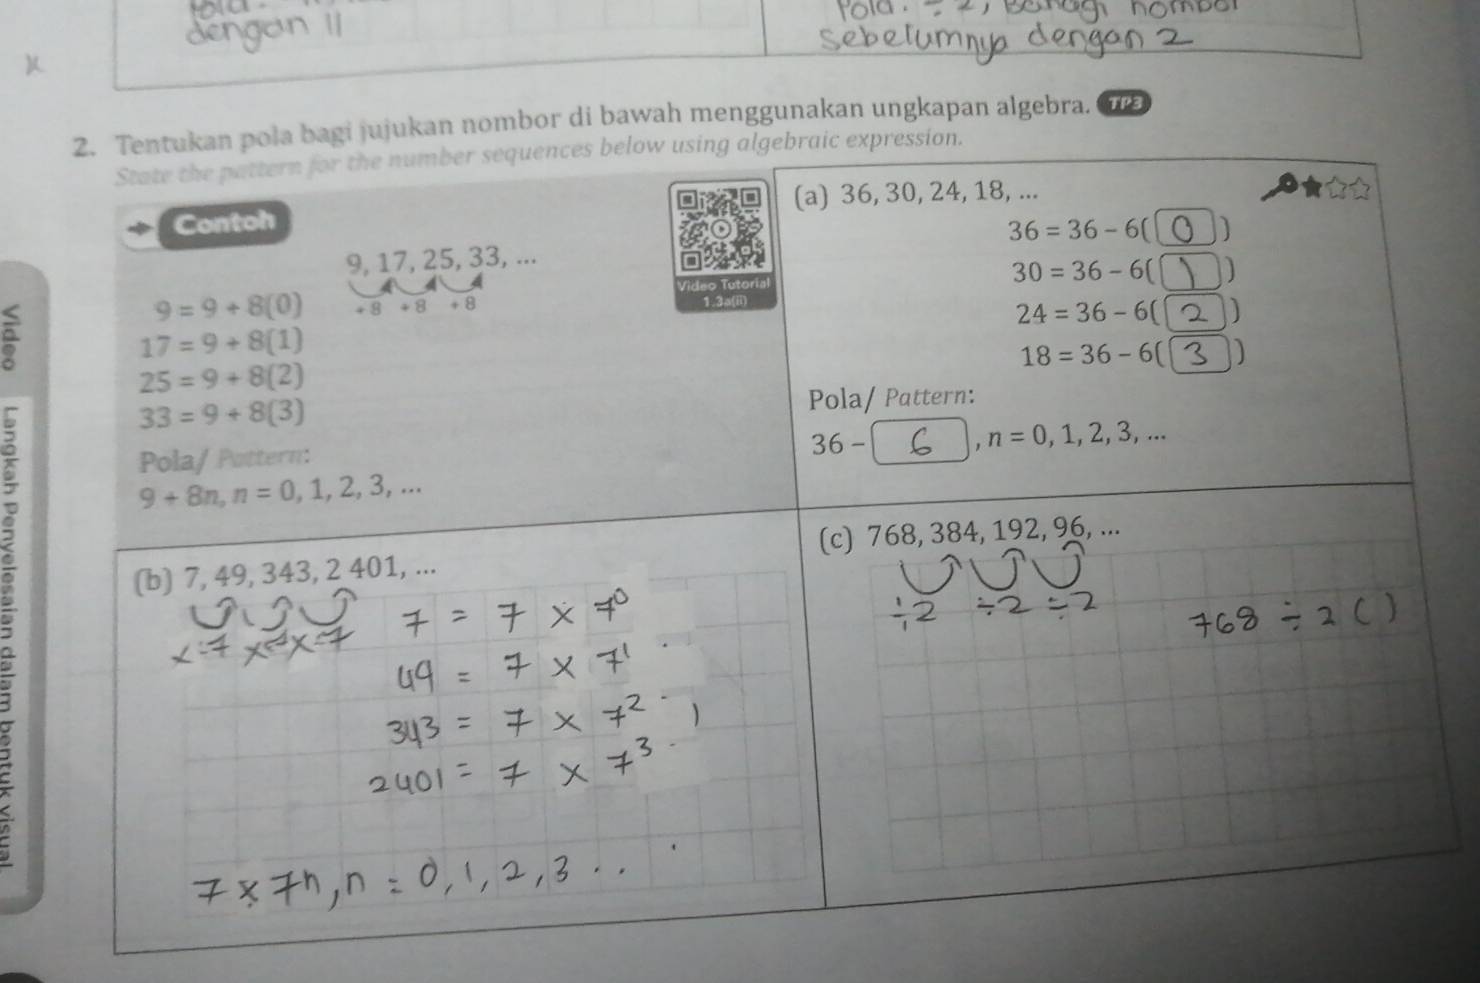 dengan 11
Pola. ÷ 2, Bahagi nombor
sebelumnya dengan 2
2. Tentukan pola bagi jujukan nombor di bawah menggunakan ungkapan algebra. TP3
State the pattern for the number sequences below using algebraic expression.
Contoh
9, 17, 25, 33, ...
+ 8 + 8 + 8
9 = 9 + 8(0)
17 = 9 + 8(1)
25 = 9 + 8(2)
33 = 9 + 8(3)
Pola/ Pattern:
9 + 8n, n = 0, 1, 2, 3, ...
Video Tutorial
1.3a(ii)
(a) 36, 30, 24, 18, ...
36 = 36 – 6( 0 )
30 = 36 – 6( 1 )
24 = 36 – 6( 2 )
18 = 36 – 6( 3 )
Pola/ Pattern:
36 – 6 , n = 0, 1, 2, 3, ...
(b) 7, 49, 343, 2 401, ...
7 = 7 × 7⁰
49 = 7 × 7¹
343 = 7 × 7²
2401 = 7 × 7³
7 × 7ⁿ, n = 0, 1, 2, 3 ...
(c) 768, 384, 192, 96, ...
÷2 ÷2 ÷2
768 ÷ 2 ( )
Video
Langkah Penyelesaian dalam bentuk visual